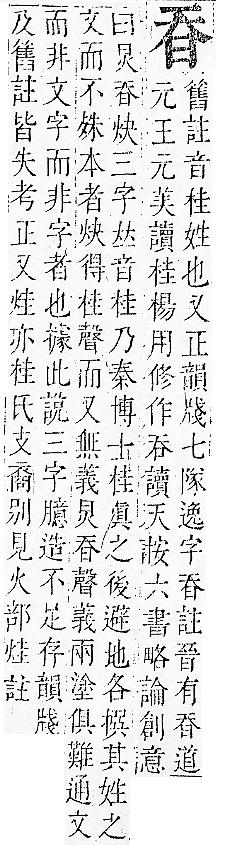 昋
舊註音桂姓也又正韻牋七隊逸字昋註晉有昋道
元王元美讀桂楊用修作吞讀天按六書略論創意
曰炅昋炔三字𠀤音桂乃秦博士桂眞之後避地各撰其姓之
文而不殊本者炔得桂聲而又無義炅昋聲義兩塗俱難通文
而非文字而非字者也據此說三字臆造不足存韻牋
及舊註皆失考正又烓亦桂氏支裔別見火部烓註